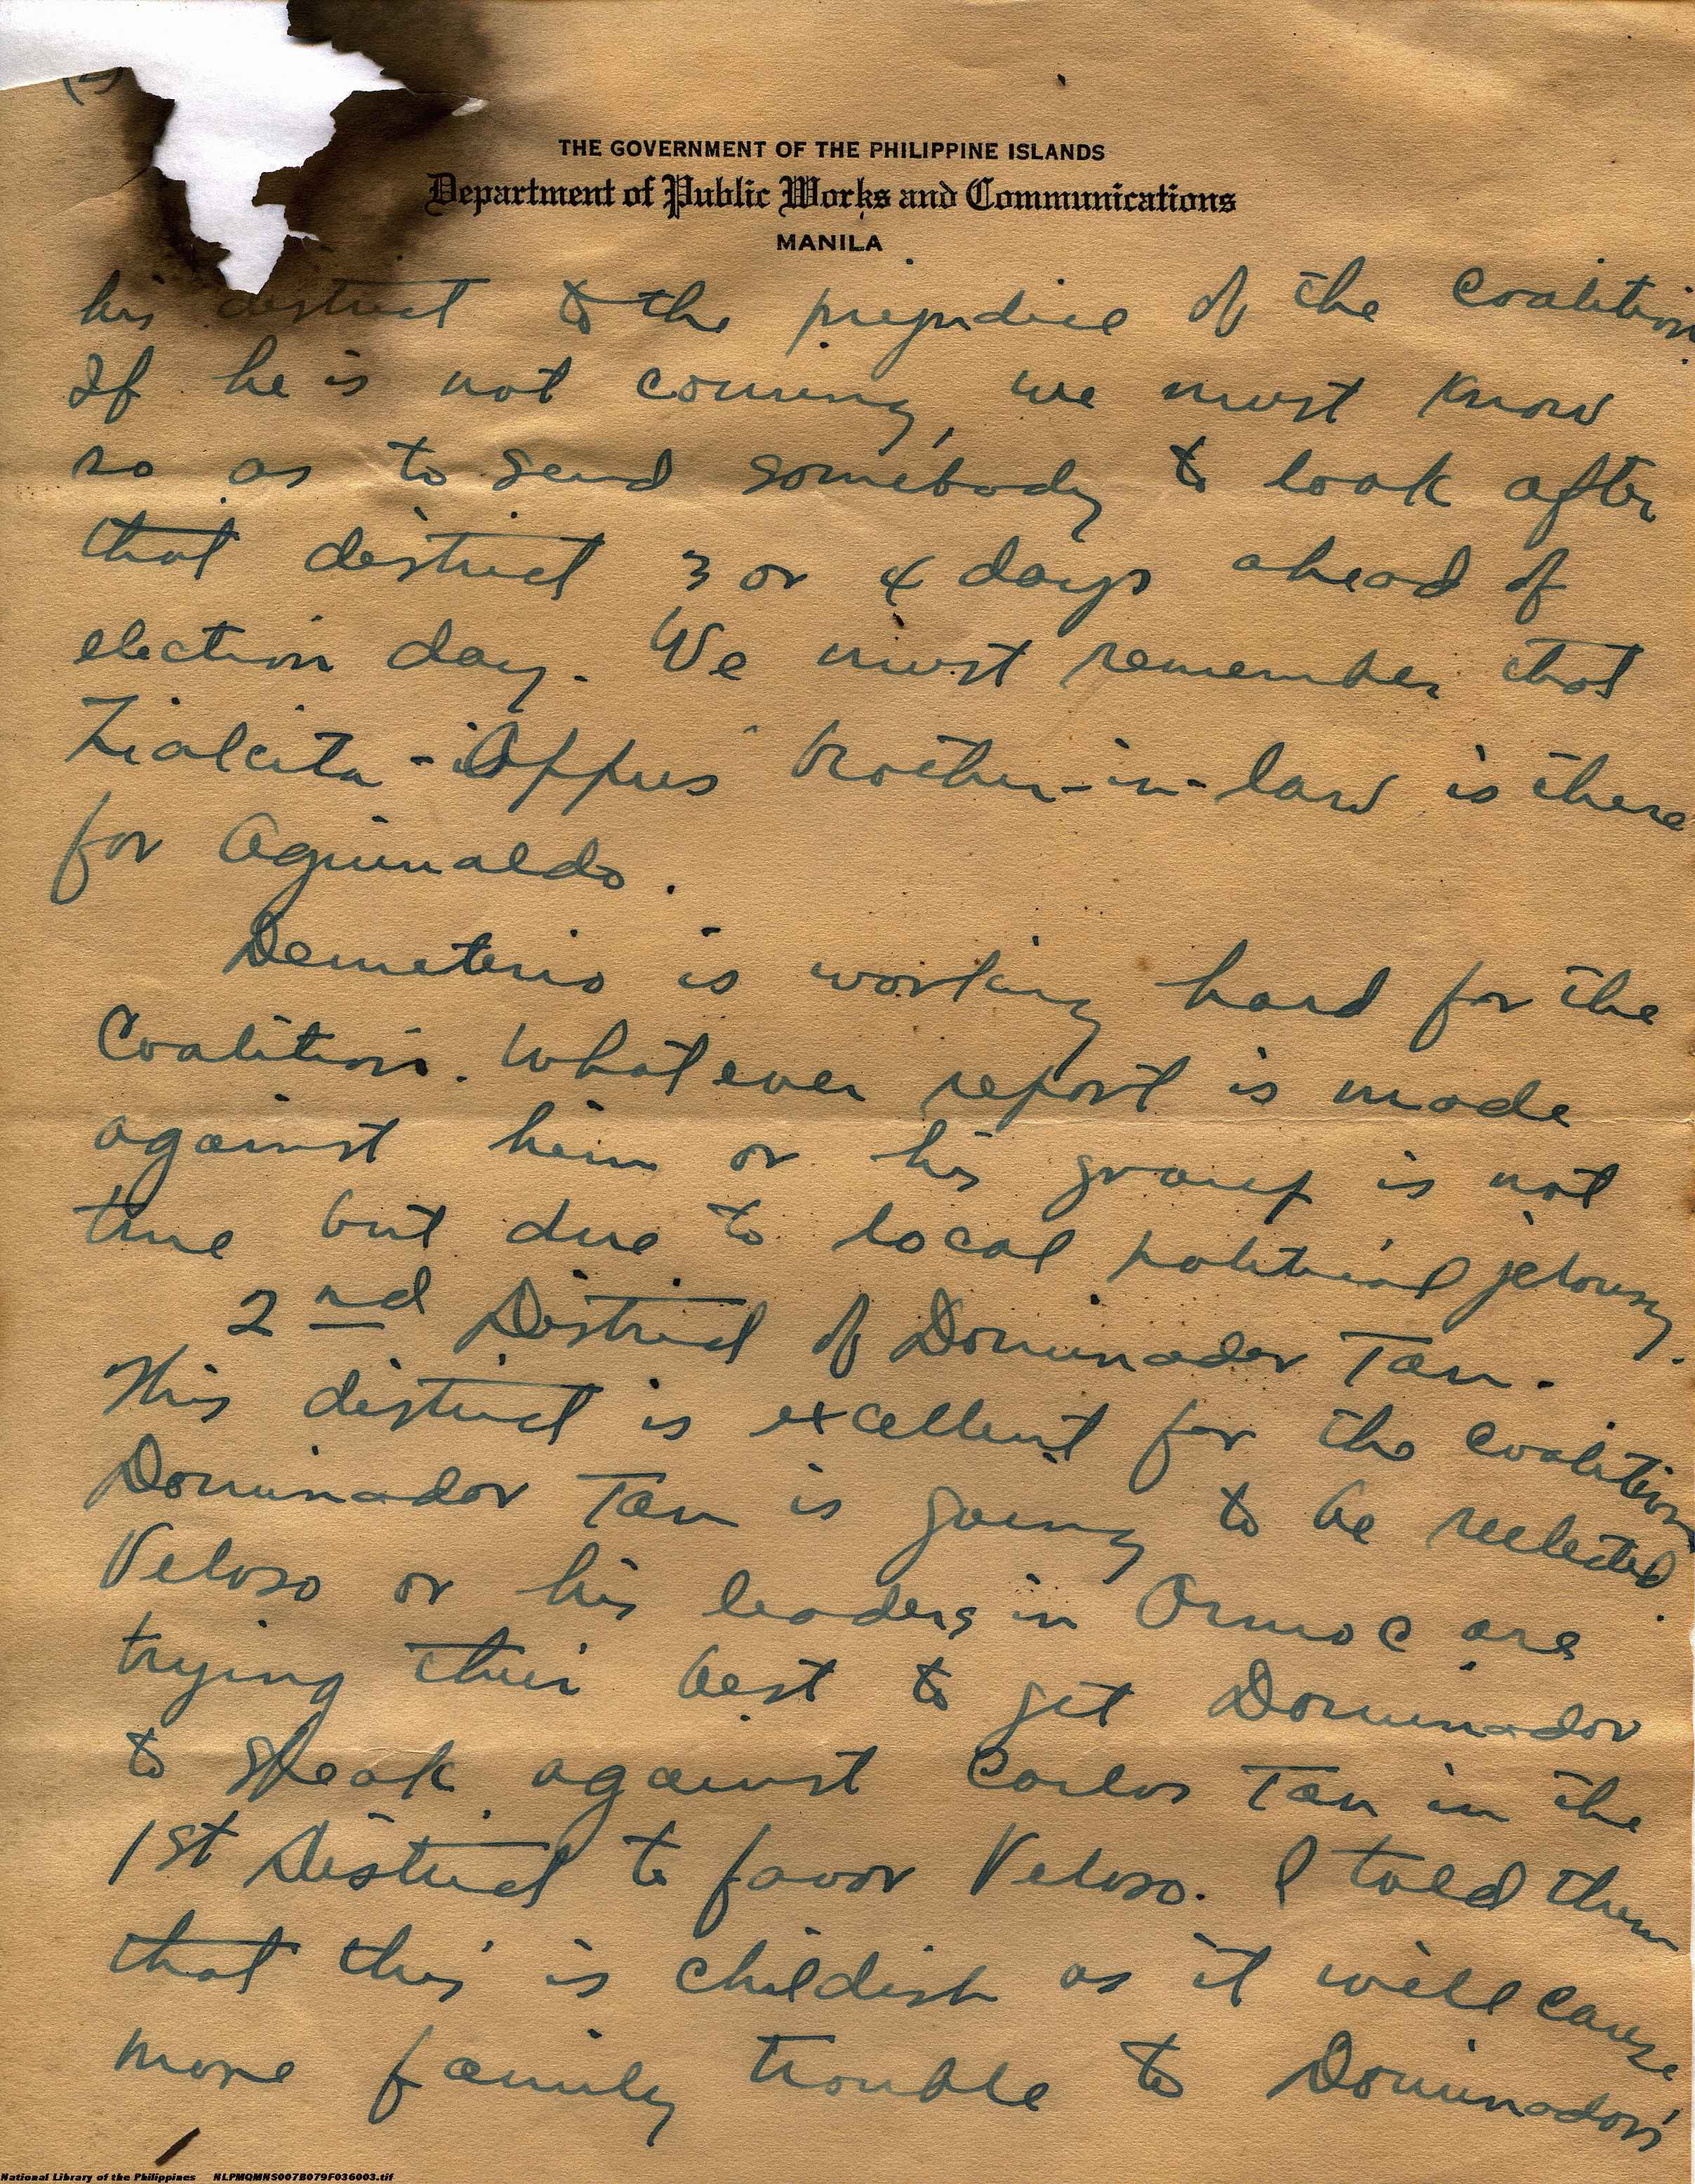 THE GOVERNMENT OF THE PHILIPPINE ISLANDS
Department of Public Works and Communications
MANILA
his district to the prejudice of the Coalition.
If he is not coming, we must know
so as to send somebody to look after
that district 3 or 4 days ahead of
election day. We must remember that
Zialcita - Oppus brother-in-law is there
for Aguinaldo.
Demeterio is working hard for the
Coalition. Whatever report is made
against him or his group is not
true but due to local political jelousy.
2nd District of Dominador Tan.
This district is excellent for the coalition
Dominador Tan is going to be reelected.
Veloso or his leaders in Ormoc are
trying their best to get Dominador
to speak against Carlos Tan in the
1st District to favor Veloso. I told them
that this is childish as it will cause
more family trouble to Dominador's
National Library of the Philippines NLPMQMNS007B079F036003.tif